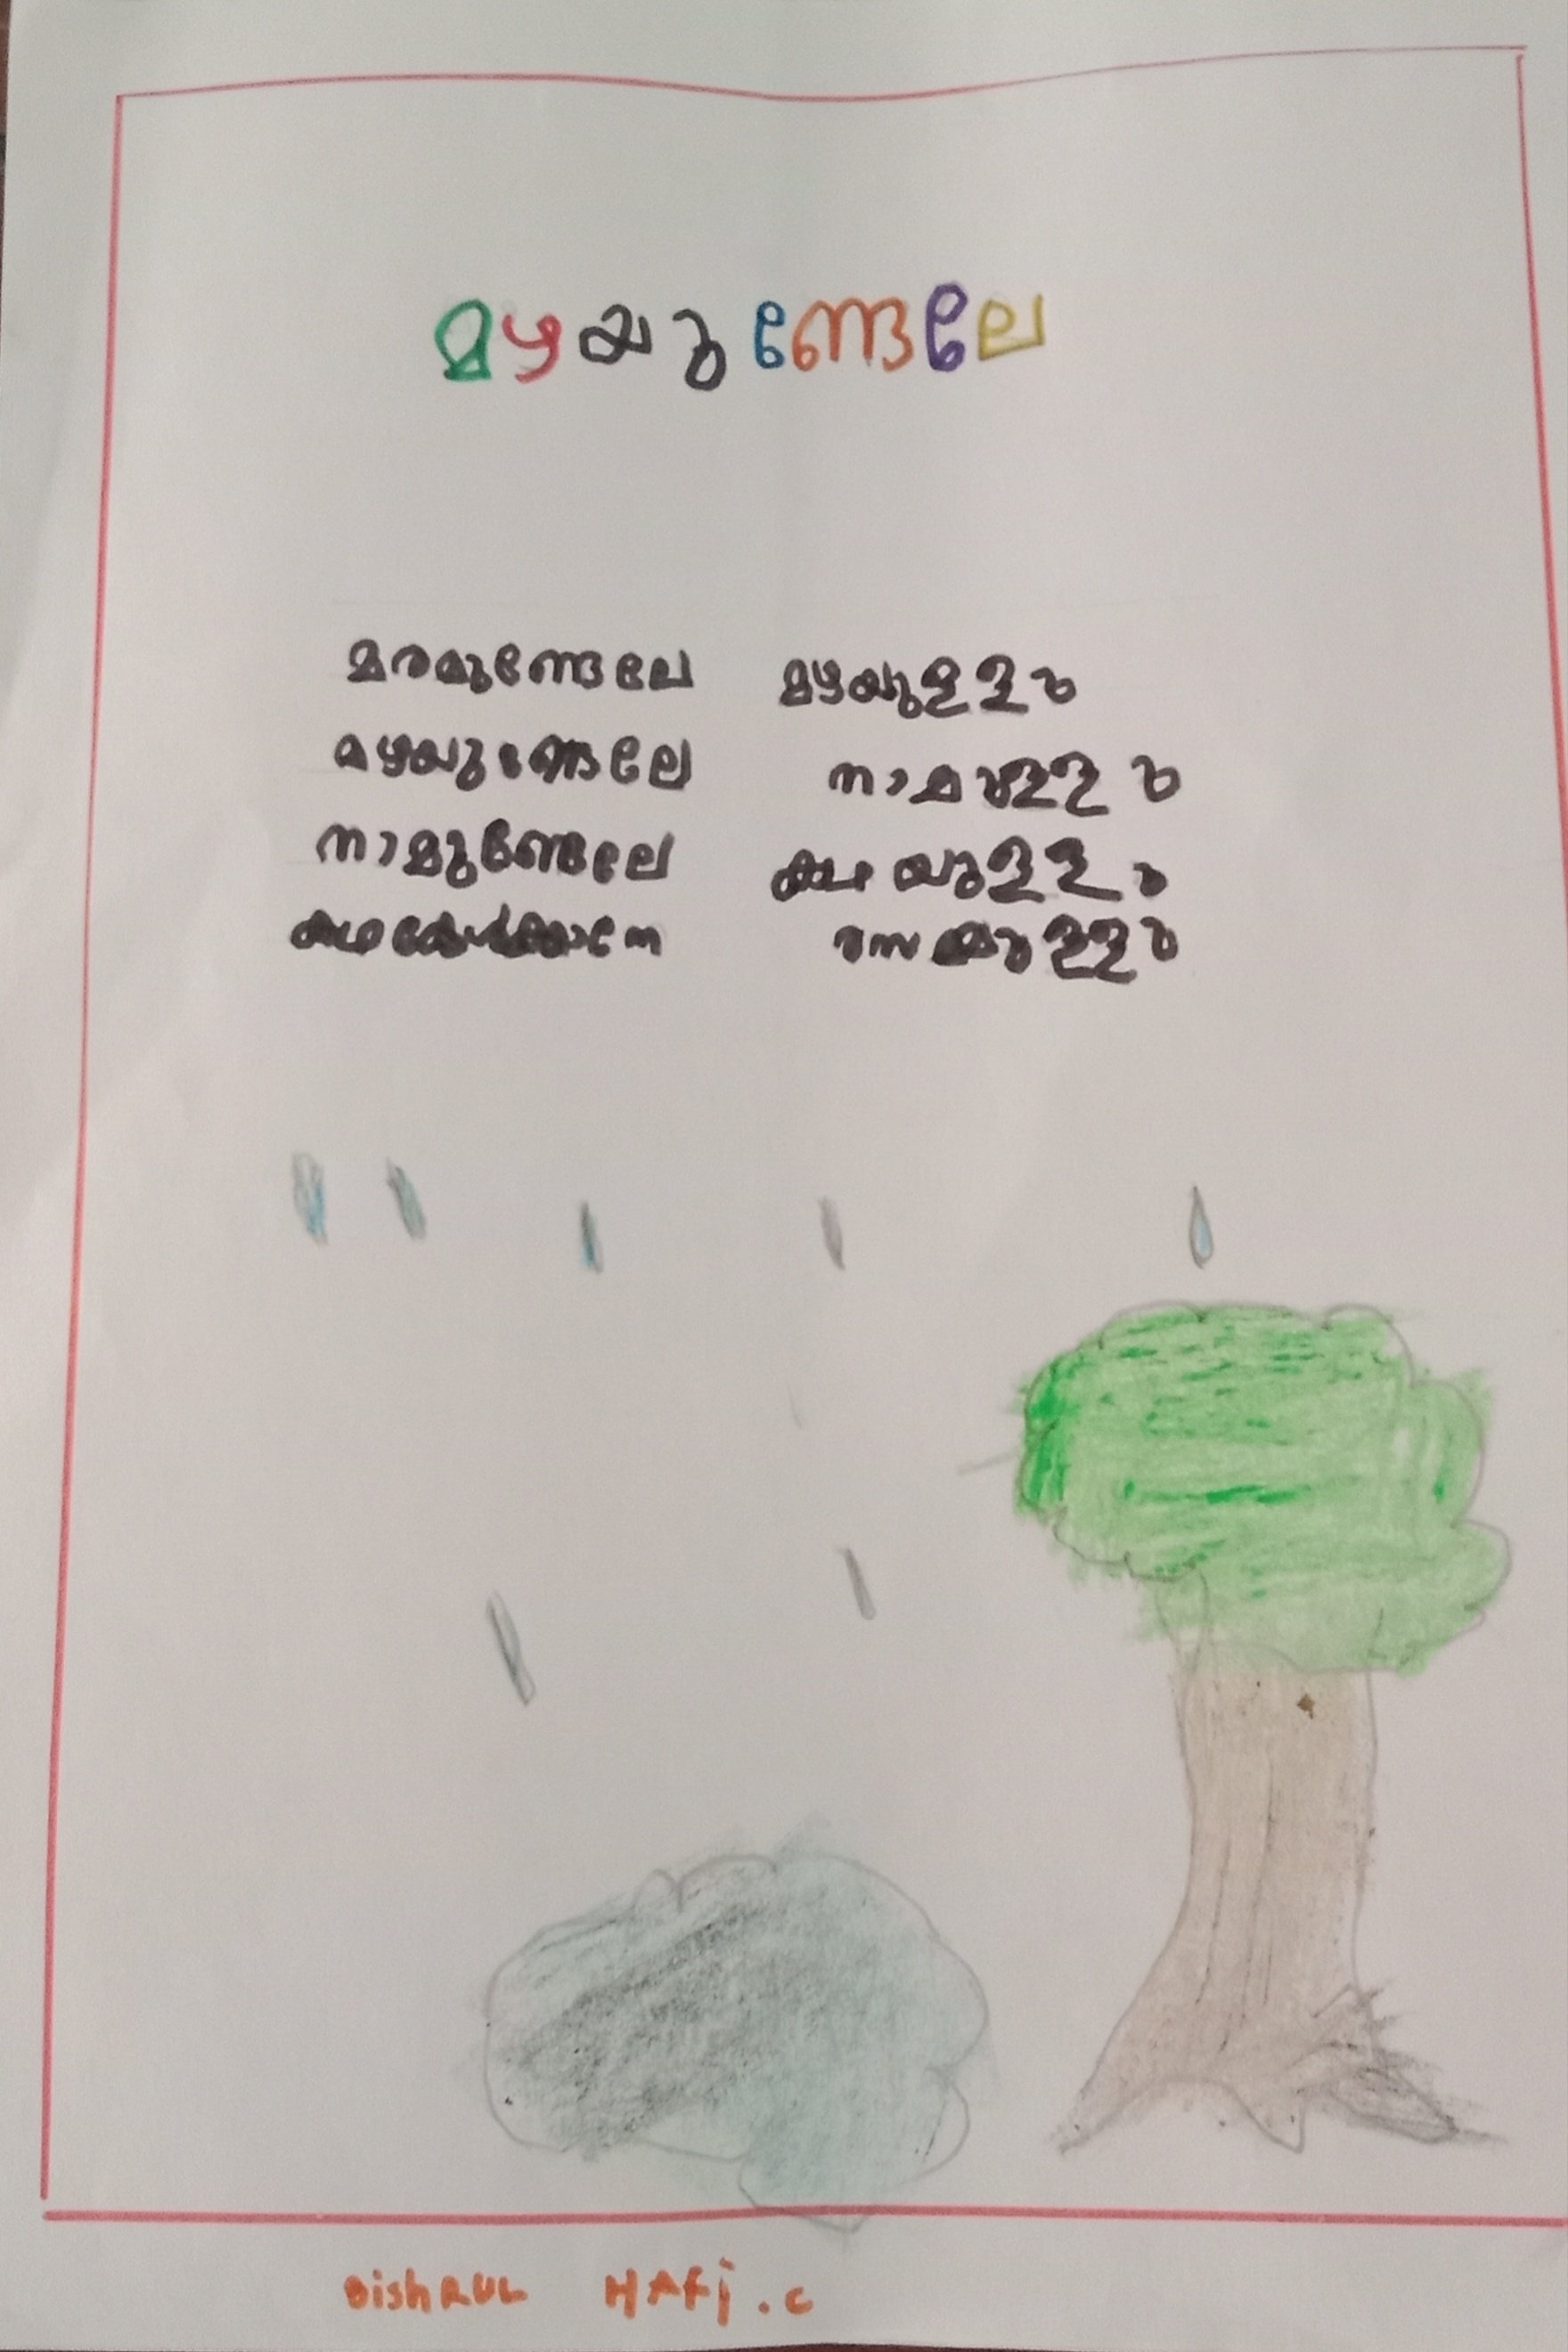 മഴയുണ്ടേലേ
മരമുണ്ടേലേ മഴയുള്ളൂ
മഴയുണ്ടേലേ നാമുള്ളൂ
നാമുണ്ടേലേ കഥയുള്ളൂ
കഥകേൾക്കാനേ രസമുള്ളൂ
BishRUL HAFi.C